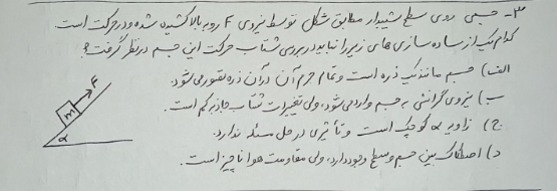 ۳- جسمی روی سطح شیبدار مطابق شکل توسط نیروی F رو به بالا کشیده شده و در حرکت است
کدام یک از ساده سازی های زیر را نباید در بررسی شتاب حرکت این جسم در نظر گرفت؟
الف) جسم مانند یک ذره است و تمام جرم آن در آن ذره تصور می شود.
ب) نیروی گرانشی به جسم وارد می شود، ولی تغییرات شتاب جاذبه کم است.
ج) زاویه α کوچک است و تأثیری در حل مسئله ندارد.
د) اصطکاک بین جسم و سطح وجود دارد، ولی مقاومت هوا ناچیز است.
F
m
α